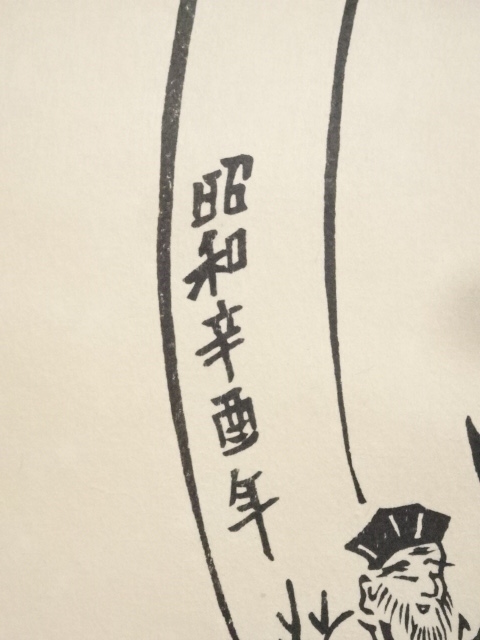 昭和辛酉年